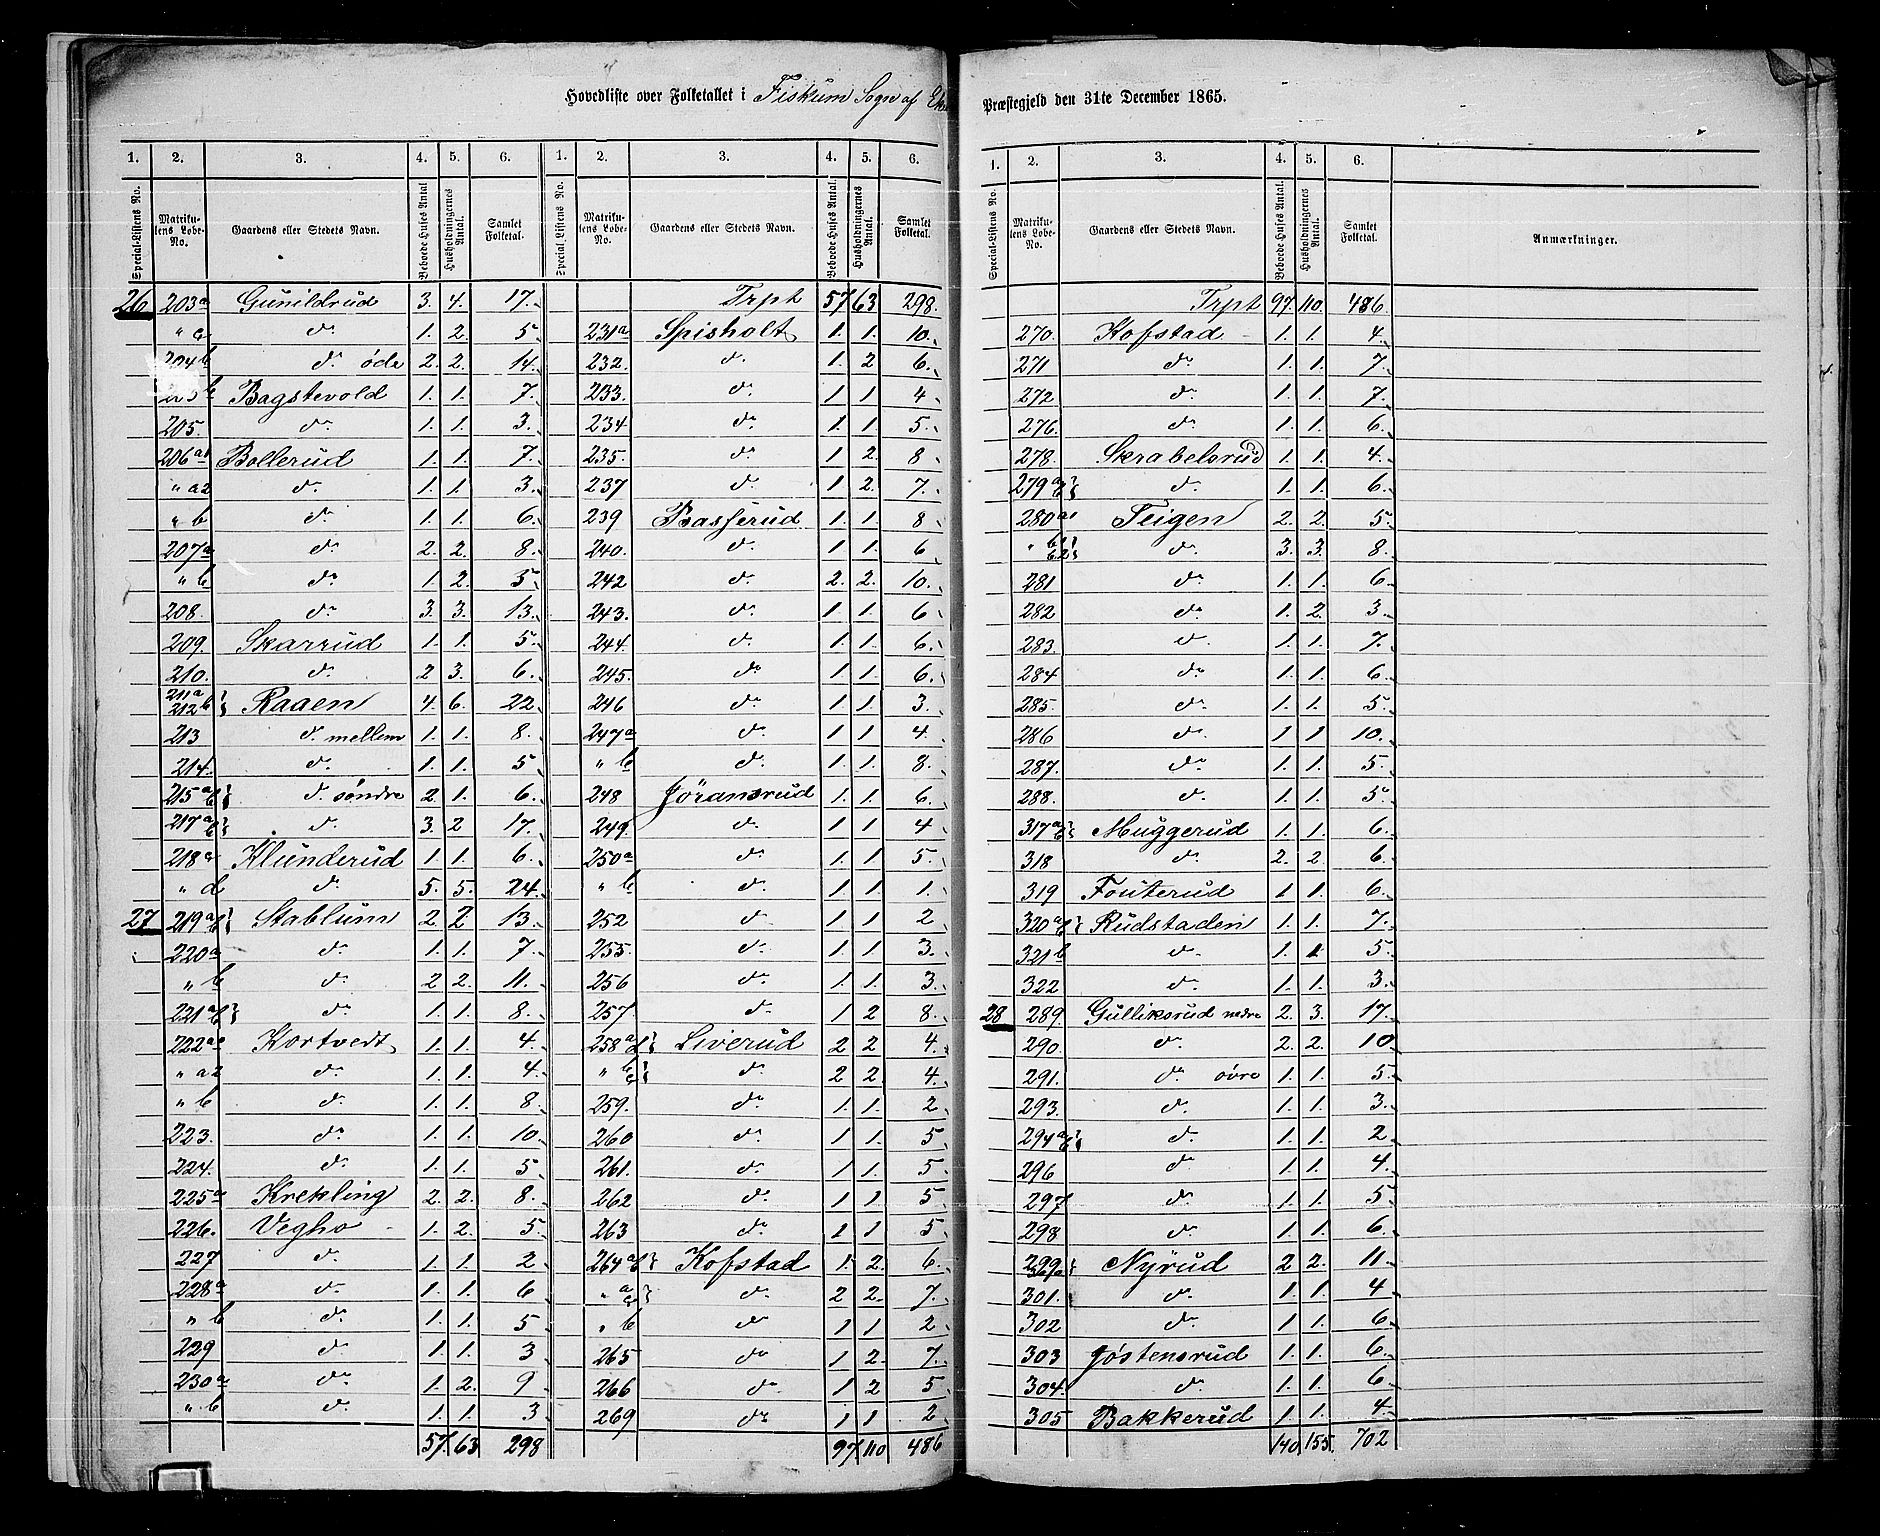 Hovedliste over Folketallet i Fiskum Sogn af Præstegjeld den 31te December 1865.
1. 2. 3. 4. 5. 6.
Special-Listens No. Matrikulens Løbe-No. Gaardens eller Stedets Navn. Beboede Huses Antal Husholdningernes Antal. Samlet Folketal.
26 203a Gunildrud 3. 4. 17.
" c do 1. 2. 5
204b do øde 2. 2. 14.
b Bagstevold 1. 1. 7.
205. do 1. 1. 3.
206a1 Bollerud 1. 1. 7.
" a2 do 1. 1. 3.
" b do 1. 1. 6.
207a do 2. 2. 8.
" b do 1. 2. 5
208. do 3. 3. 13.
209. Skarrud 1. 1. 5
210. do 2 3. 6.
211a 212b } Raaen 4. 6. 22
213 do mellem 1. 1. 8.
214. do 1. 1. 5
215ab } do søndre 2. 1. 6.
217ab } do 3. 2 17.
218a Klunderud 1. 1. 6.
" d do 5. 5. 24.
27 219ab } Stablum 2. 2 13.
220a do 1. 1. 7.
" b do 2 2. 11.
221ab } do 1. 1. 8.
222a1 Kortvedt 1. 1. 4.
" a2 do 1. 1. 4
" b do 1. 1. 8.
223. do 1. 1. 10.
224. do 1. 1. 5
225a Krekling 2. 2. 8.
226. Vegho 1. 2. 5
227 do 1. 1. 2
228a do 1. 1. 6
" b do 1. 1. 5
229 do 1. 1. 3
230a do 1. 2. 9
" b do 1. 1. 3
57. 63 298
1. 2. 3. 4. 5. 6.
Special Listens No. Matrikulens Løbe-No. Gaardens eller Stedets Navn. Beboede Huses Antal. Husholdningernes Antal. Samlet Folketal.
Trpt 57 63 298.
231a Spisholt 1. 1. 10.
232. do 1. 2 6.
233. do 1. 1 4
234 do 1. 1. 5.
235. do 1 2. 8
237 do 1 2. 7.
239 Basserud 1. 1. 8
240. do 1 1. 6
242 do 2. 2. 10.
243. do 1 1. 6
244. do 1. 1. 6.
245. do 1 1. 6.
246 do 1. 1. 3.
247a do 1. 1. 4
" b do 1. 1. 8.
248 Jøransrud 1. 1. 6.
249. do 1 1. 4
250a do 1. 1. 5.
" b do 1. 1. 1.
252 do 1 1. 2
255. do 1. 1. 3.
256 do 1. 1. 3.
257. do 1 2 8.
258a } Liverud 2 2 4.
" bc } do 2 2. 4.
259. do 1. 1. 2
260 do 1 1. 5
261. do 1 1. 5.
262 do 1 1. 5
263 do 1 1. 5
264ab } Kofstad 1. 2. 6.
" ac } do 2 2. 7.
" b do 1 1 2
265 do 1 2. 7.
266 do 1 2 5
269 do 1 1 2
97. 110 486
1. 2. 3. 4. 5. 6.
Special-Listens No. Matrikulens Løbe-No. Gaardens eller Stedets Navn. Beboede Huses Antal. Husholdningernes Antal. Samlet Folketal. Anmærkninger.
Trpt 97. 110. 486.
270. Kofstad 1. 1. 4.
271 do 1. 1. 7.
272 do 1. 1. 7.
276. do 1. 1. 6.
278. Skrabelsrud 1. 1. 4.
279ab } do 1. 1. 6.
280a1 Teigen 2. 2. 5.
" b1 b2 } do 3. 3. 8.
281 do 1. 1. 6
282 do 1. 2. 3.
283 do 1. 1. 7.
284 do 1. 1. 6
285. do 1. 1. 5.
286 do 1 1 10.
287. do 1. 1. 5.
288. do 1. 1. 5.
317ab } Muggerud 1. 1. 6.
318 do 2. 2. 6.
319 Fouterud 1 1. 6.
320ab } Rudstaden 1. 1. 7.
321b do 1. 1 5.
322 do 1. 1. 3.
28 289. Gulliksrud nedre 2. 3. 17.
290. do 2. 2. 10
291. do øvre 1. 1. 5
293. do 1. 1. 3.
294ab } do 1. 1. 2
296 do 1. 1. 4.
297 do 1. 1. 5
298 do 1. 1. 6.
299 } Nyrud 2 2. 11.
301. do 1. 1. 4
302 do 1. 1. 6
303 Jøstensrud 1. 1. 6.
304. do 1. 1. 6
305 Bakkerud 1. 1. 4
140. 155. 702